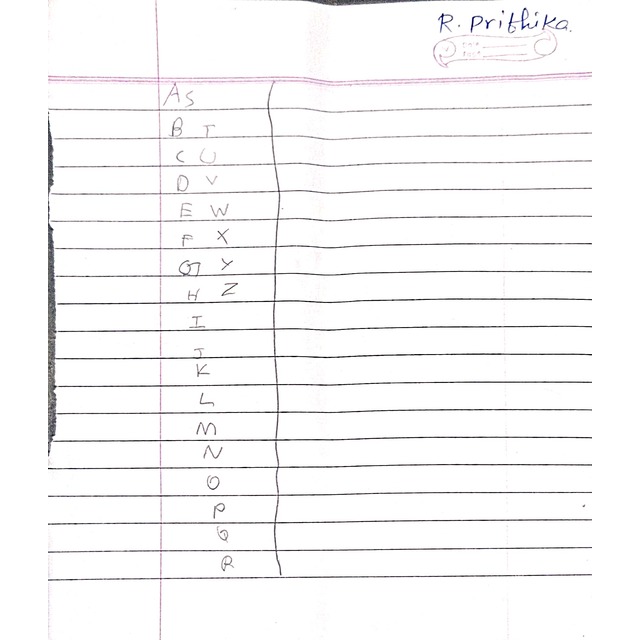 R. Prithika.
A S
B T
C U
D V
E W
F X
G Y
H Z
I
J
K
L
M
N
O
P
Q
R